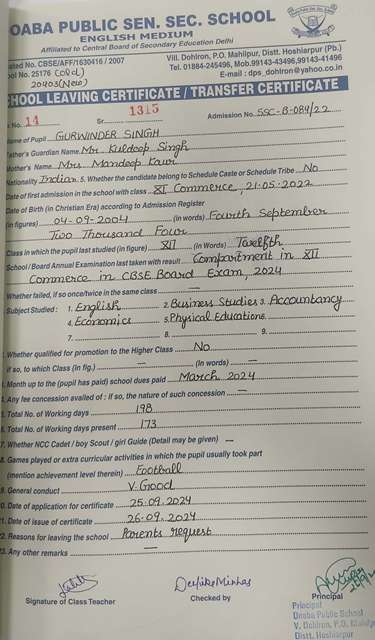 OABA PUBLIC SEN. SEC. SCHOOL
ENGLISH MEDIUM
Affiliated to Central Board of Secondary Education Delhi
ated No. CBSE/AFF/1630416 / 2007
ool No. 25176 (Old)
20403 (New)
Vill. Dohlron, P.O. Mahilpur, Distt. Hoshiarpur (Pb.)
Tel. 01884-245496, Mob.99143-43496,99143-41496
E-mail : dps_dohlron@yahoo.co.in
HOOL LEAVING CERTIFICATE / TRANSFER CERTIFICATE
No. 14 Sr. 1315 Admission No. SSC-B-084/22
Name of Pupil GURWINDER SINGH
Father's Guardian Name Mr. Kuldeep Singh
Mother's Name Mrs. Mandeep Kaur
Nationality Indian 5. Whether the candidate belong to Schedule Caste or Schedule Tribe No
Date of first admission in the school with class XI Commerce, 21.05.2022
Date of Birth (in Christian Era) according to Admission Register
(in figures) 04-09-2004 (in words) Fourth September
Two Thousand Four
Class in which the pupil last studied (in figure) XII (in Words) Twelfth
School / Board Annual Examination last taken with result Compartment in XII
Commerce in CBSE Board Exam, 2024
Whether failed, if so once/twice in the same class —
Subject Studied : 1. English 2. Business Studies 3. Accountancy
4. Economics 5. Physical Education 6.
7. — 8. — 9. —
Whether qualified for promotion to the Higher Class No
if so, to which Class (In fig.) — (In words) —
Month up to the (pupil has paid) school dues paid March 2024
Any fee concession availed of : if so, the nature of such concession —
5. Total No. of Working days 198
6. Total No. of Working days present 173
7. Whether NCC Cadet / boy Scout / girl Guide (Detail may be given) —
8. Games played or extra curricular activities in which the pupil usually took part
(mention achievement level therein) Football
9. General conduct V. Good
0. Date of application for certificate 25.09.2024
1. Date of issue of certificate 26.09.2024
2. Reasons for leaving the school Parents request
3. Any other remarks —
Deepika Minhas
Signature of Class Teacher Checked by Principal
Principal
Doaba Public School
V. Dohlron, P.O. Mahilpu
Distt. Hoshiarpur